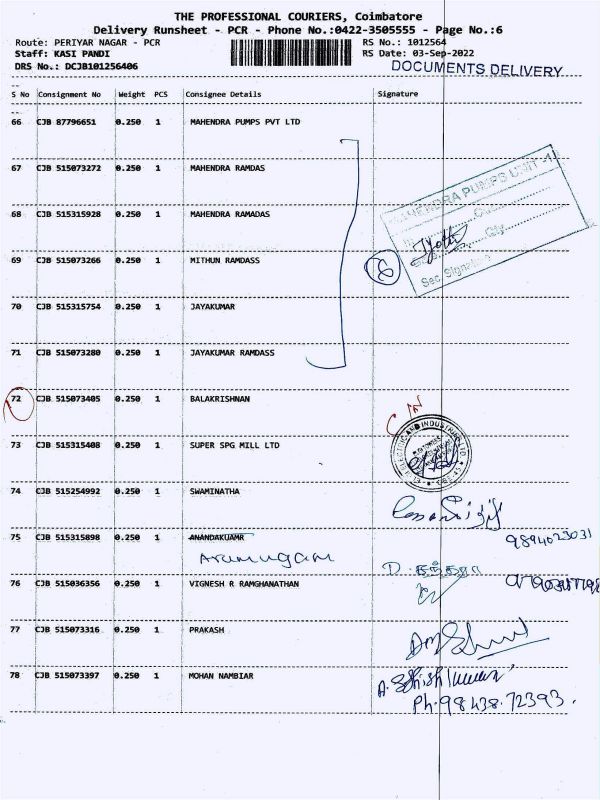 THE PROFESSIONAL COURIERS, Coimbatore
Delivery Runsheet - PCR - Phone No.:0422-3505555 - Page No.:6
Route: PERIYAR NAGAR - PCR RS No.: 1012564
Staff: KASI PANDI RS Date: 03-Sep-2022
DRS No.: DCJB101256406 DOCUMENTS DELIVERY
S No Consignment No Weight PCS Consignee Details Signature
66 CJB 87796651 0.250 1 MAHENDRA PUMPS PVT LTD
67 CJB 515073272 0.250 1 MAHENDRA RAMDAS
MAHENDRA PUMPS UNIT - 1
68 CJB 515315928 0.250 1 MAHENDRA RAMADAS
Jyothi
69 CJB 515073266 0.250 1 MITHUN RAMDASS
6
Sec Signature
70 CJB 515315754 0.250 1 JAYAKUMAR
71 CJB 515073280 0.250 1 JAYAKUMAR RAMDASS
72 CJB 515073405 0.250 1 BALAKRISHNAN
73 CJB 515315408 0.250 1 SUPER SPG MILL LTD
74 CJB 515254992 0.250 1 SWAMINATHA
75 CJB 515315898 0.250 1 ANANDAKUAMR
9894023031
Arumugam
76 CJB 515036356 0.250 1 VIGNESH R RAMGHANATHAN
77 CJB 515073316 0.250 1 PRAKASH
78 CJB 515073397 0.250 1 MOHAN NAMBIAR
Ph.98438.72393.